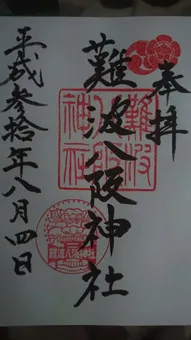 奉拝
難波八阪神社
平成参拾年八月四日
難波八阪神社
難波八阪神社